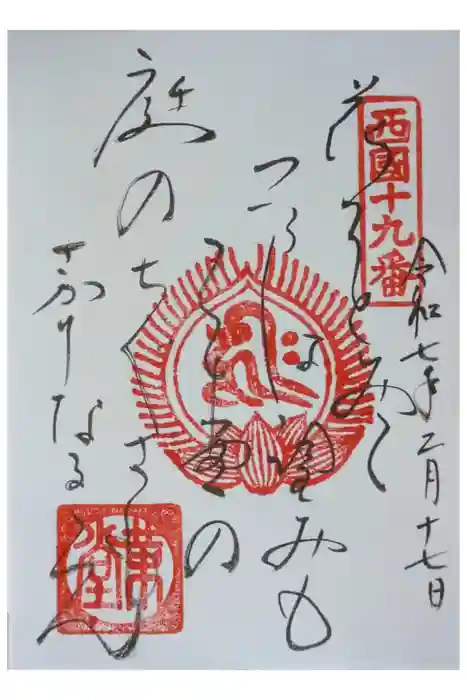 西國十九番
令和七年二月十七日
花をみて
いまは望みも
かう堂の
庭のちくさも
さかりなるらん
革堂